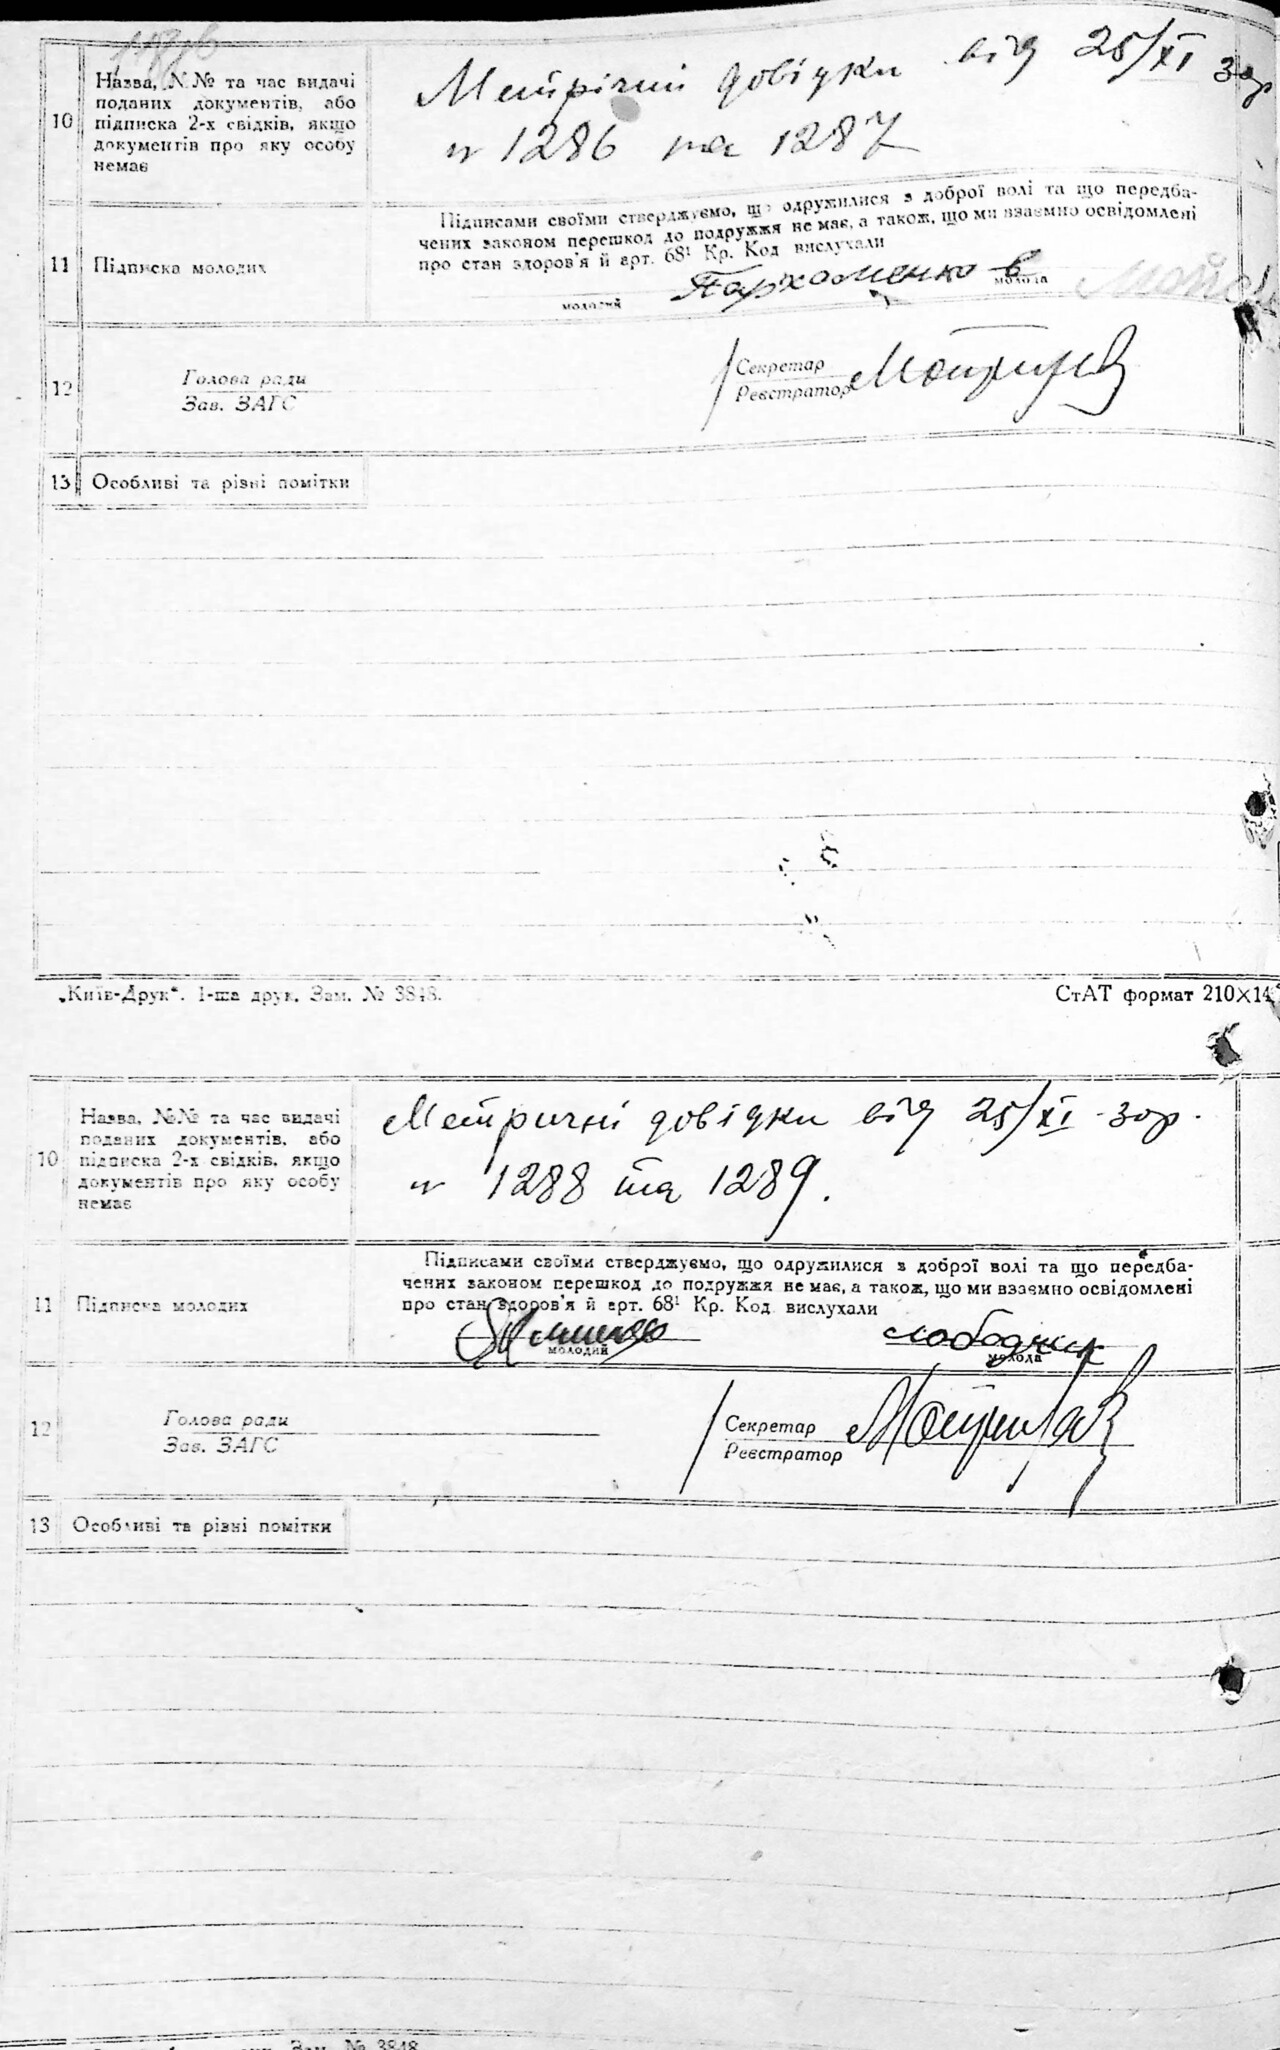 10
Назва, N.№ та час видачі
поданих документів, або
підписка 2-х свідків, якщо
документів про яку особу
немає
Метрічні довідки від 25/XI 30р
№ 1286 та 1287
11
Підписка молодих
Підписами своїми стверджуємо, що одружилися з доброї волі та що передба-
чених законом перешкод до подружжя не має, а також, що ми взаємно освідомлені
про стан здоров'я й арт. 68¹ Кр. Код вислухали
Пархоменко в
молодий
молода
12
Голова ради
Зав. ЗАГС
Секретар
Реєстратор
13
Особливі та різні помітки
„Київ-Друк“. 1-ша друк. Зам. № 3848.
СтАТ формат 210×14
10
Назва, №№ та час видачі
поданих документів, або
підписка 2-х свідків, якщо
документів про яку особу
немає
Метричні довідки від 25/XI 30р.
№ 1288 та 1289.
11
Підписка молодих
Підписами своїми стверджуємо, що одружилися з доброї волі та що передба-
чених законом перешкод до подружжя не має, а також, що ми взаємно освідомлені
про стан здоров'я й арт. 68¹ Кр. Код вислухали
молодий
молода
12
Голова ради
Зав. ЗАГС
Секретар
Реєстратор
13
Особливі та різні помітки
Зам. № 3848